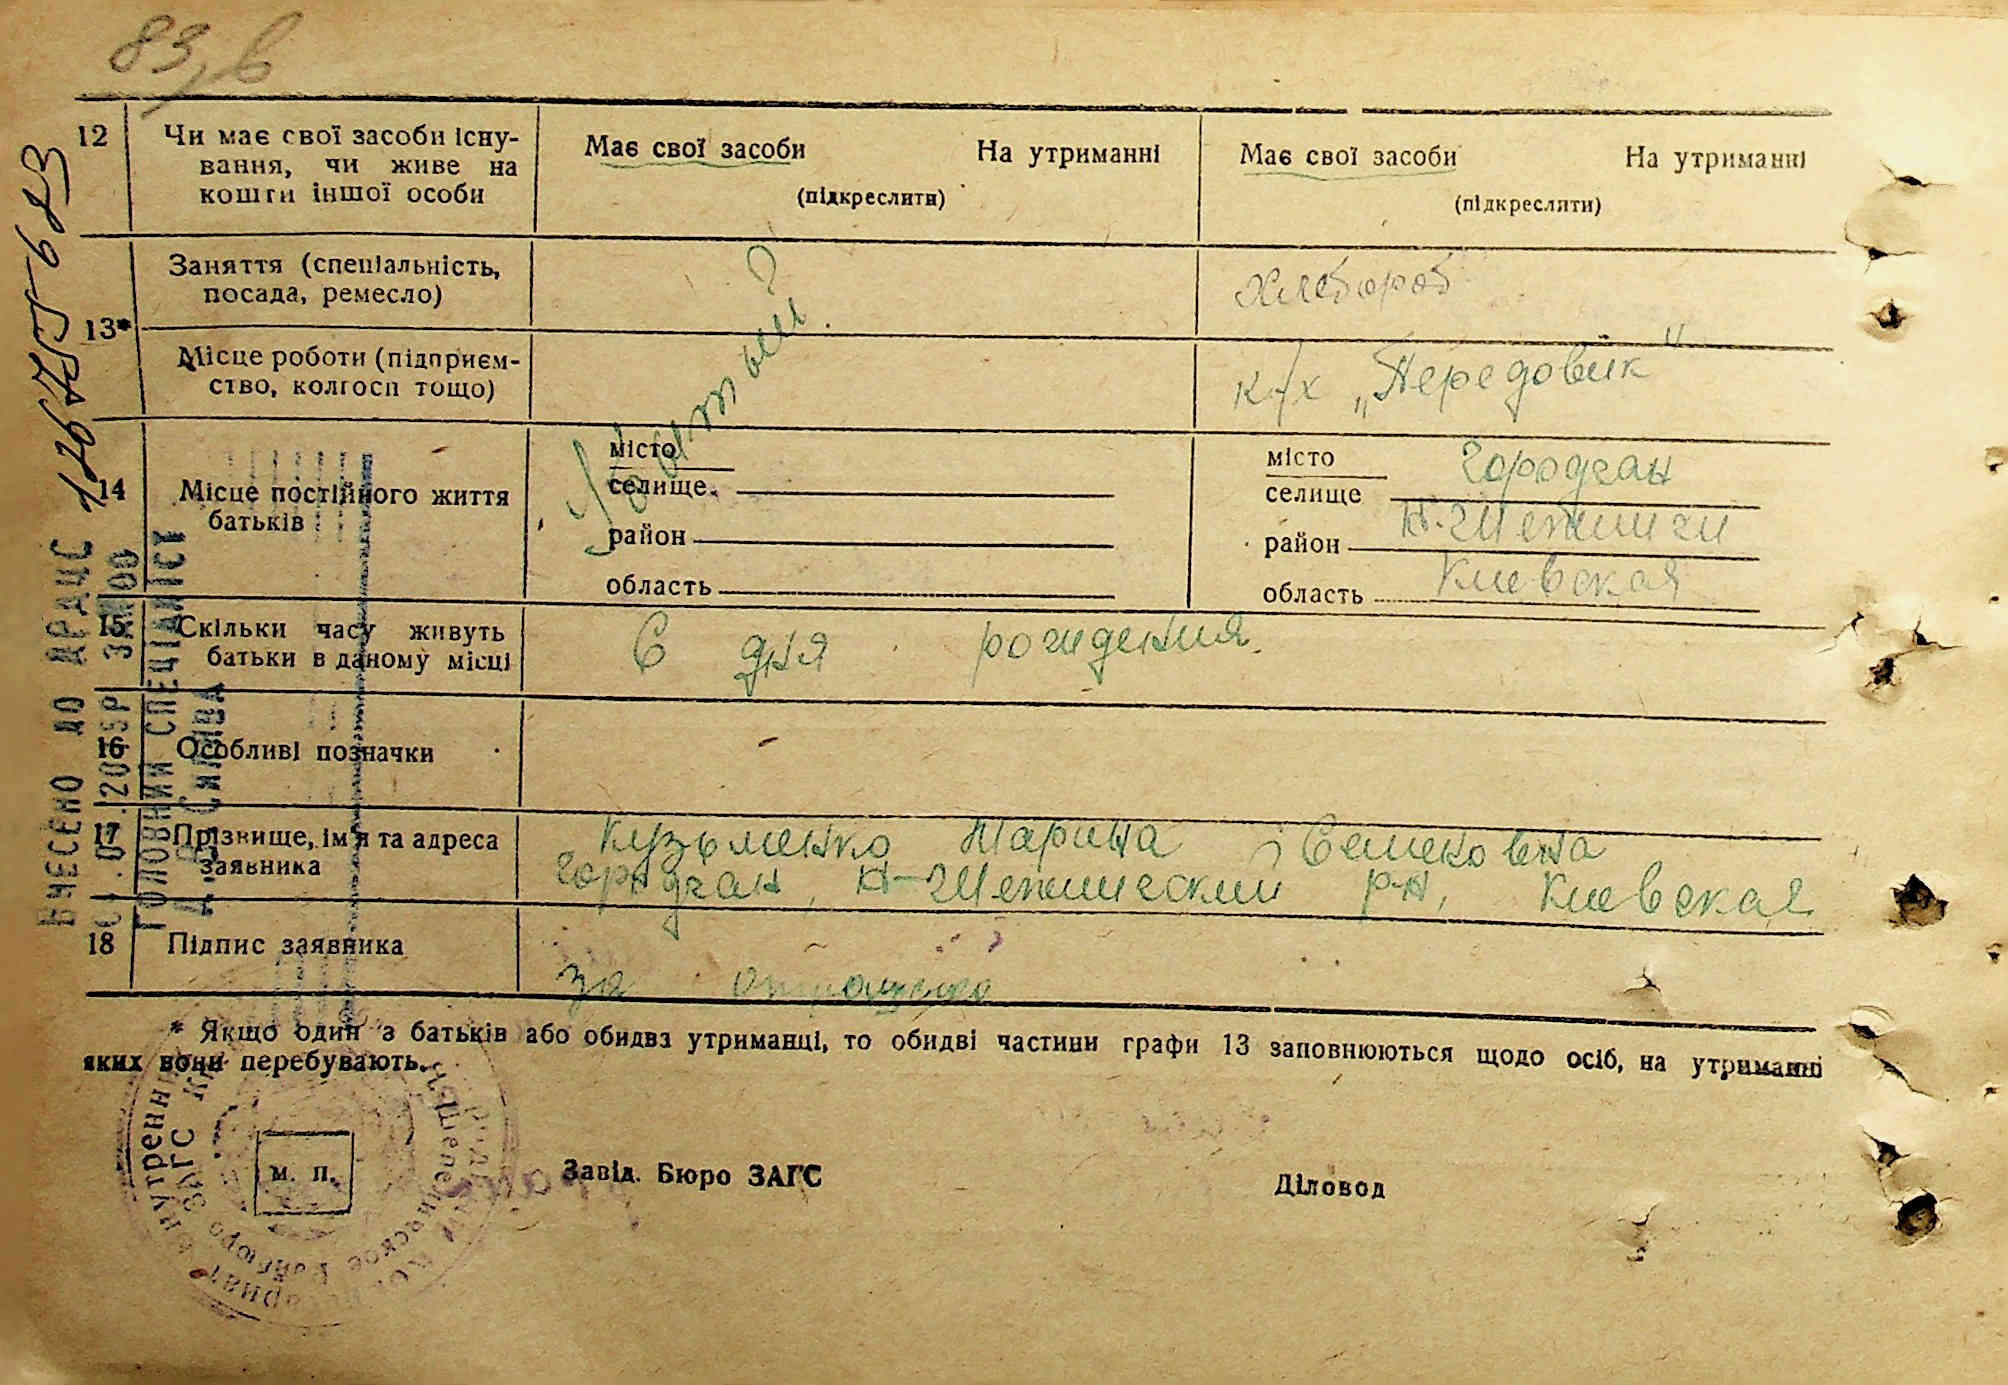 83,в
12
Чи має свої засоби існу-
вання, чи живе на
кошти іншої особи
Має свої засоби На утриманні
(підкреслити)
Має свої засоби На утриманні
(підкреслити)
13*
Заняття (спеціальність,
посада, ремесло)
хлебороб
Місце роботи (підприєм-
ство, колгосп тощо)
к/х „Передовик"
14
Місце постійного життя
батьків
місто
селище
район
область
місто
селище Городчан
район Н-Шепеличи
область Киевская
15
Скільки часу живуть
батьки в даному місці
С дня рождения.
16
Особливі позначки
17
Прізвище, ім'я та адреса
заявника
Кузьменко Марина Семеновна
Городчан, Н-Шепелический р-н, Киевская
18
Підпис заявника
за
* Якщо один з батьків або обидва утриманці, то обидві частини графи 13 заповнюються щодо осіб, на утриманні
яких вони перебувають.
м. п.
Завід. Бюро ЗАГС
Діловод
ВНЕСЕНО ДО ДРАЦС
ГОЛОВНИЙ СПЕЦІАЛІСТ